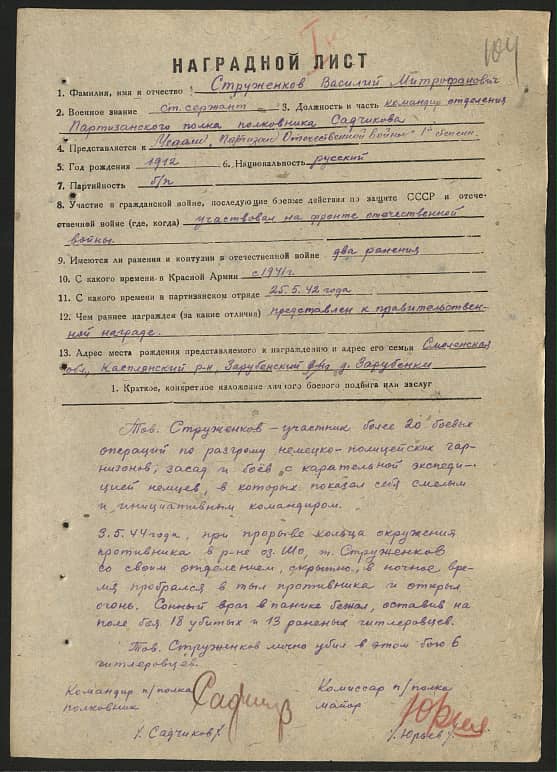 104
НАГРАДНОЙ ЛИСТ
1. Фамилия, имя и отчество Струженков Василий Митрофанович
2. Военное звание ст. сержант 3. Должность и часть командир отделения
Партизанского полка полковника Садчикова
4. Представляется к Медали „Партизан Отечественной войны" 1й степен.
5. Год рождения 1912 6. Национальность русский
7. Партийность б/п
8. Участие в гражданской войне, последующие боевые действия по защите СССР и отече-
ственной войне (где, когда) участвовал на фронте отечественной
войны.
9. Имеются ли ранения и контузии в отечественной войне два ранения
10. С какого времени в Красной Армии с 1941 г.
11. С какого времени в партизанском отряде 25.5.42 года
12. Чем ранее награжден (за какие отличия) представлен к правительствен-
ной награде.
13. Адрес места рождения представляемого к награждению и адрес его семьи Смоленская
обл, Касплянский р-н, Зарубенский с/с д. Зарубенки
1. Краткое, конкретное изложение личного боевого подвига или заслуг
Тов. Струженков – участник более 20 боевых
операций по разгрому немецко-полицейских гар-
низонов, засад и боёв с карательной экспеди-
цией немцев, в которых показал себя смелым
и инициативным командиром.
3.5.44 года, при прорыве кольца окружения
противника в р-не оз. Шо, т. Струженков
со своим отделением, скрытно, в ночное вре-
мя пробрался в тыл противника и открыл
огонь. Сонный враг в панике бежал, оставив на
поле боя 18 убитых и 13 раненых гитлеровцев.
Тов. Струженков лично убил в этом бою 6
гитлеровцев.
Командир п/полка Комиссар п/полка
полковник майор
/. Садчиков / /. Юрьев /